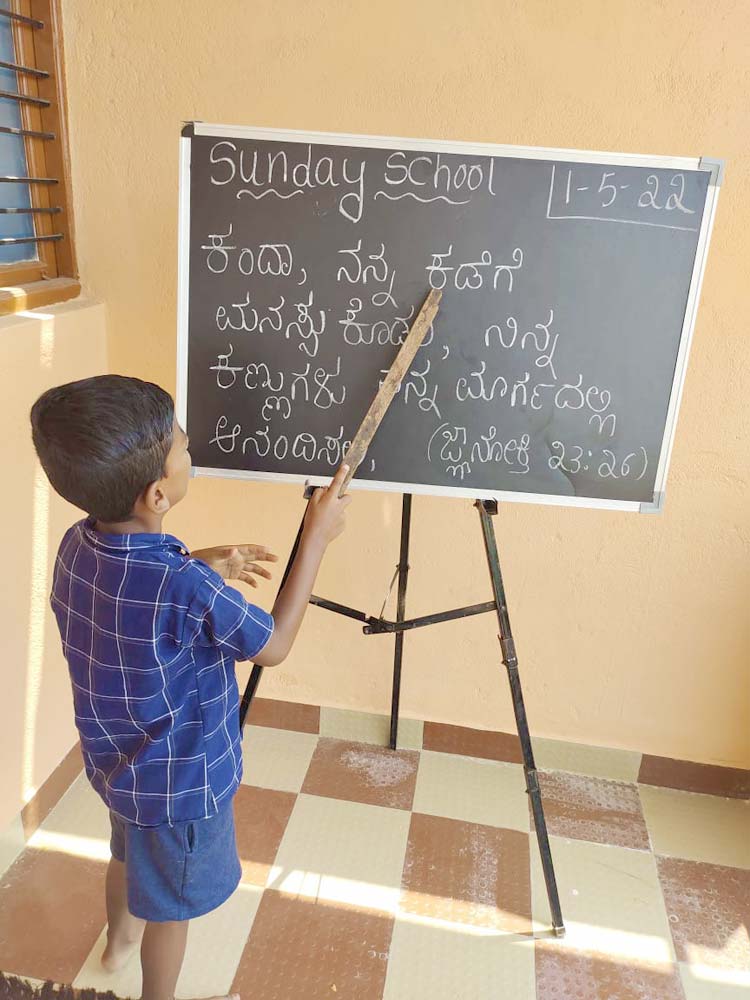 Sunday School 1-5-22
ಕಂದಾ, ನನ್ನ ಕಡೆಗೆ
ಮನಸ್ಸು ಕೊಡು, ನಿನ್ನ
ಕಣ್ಣುಗಳು ನನ್ನ ಮಾರ್ಗದಲ್ಲಿ
ಆನಂದಿಸಲಿ, (ಜ್ಞಾನೋಕ್ತಿ 23:26)